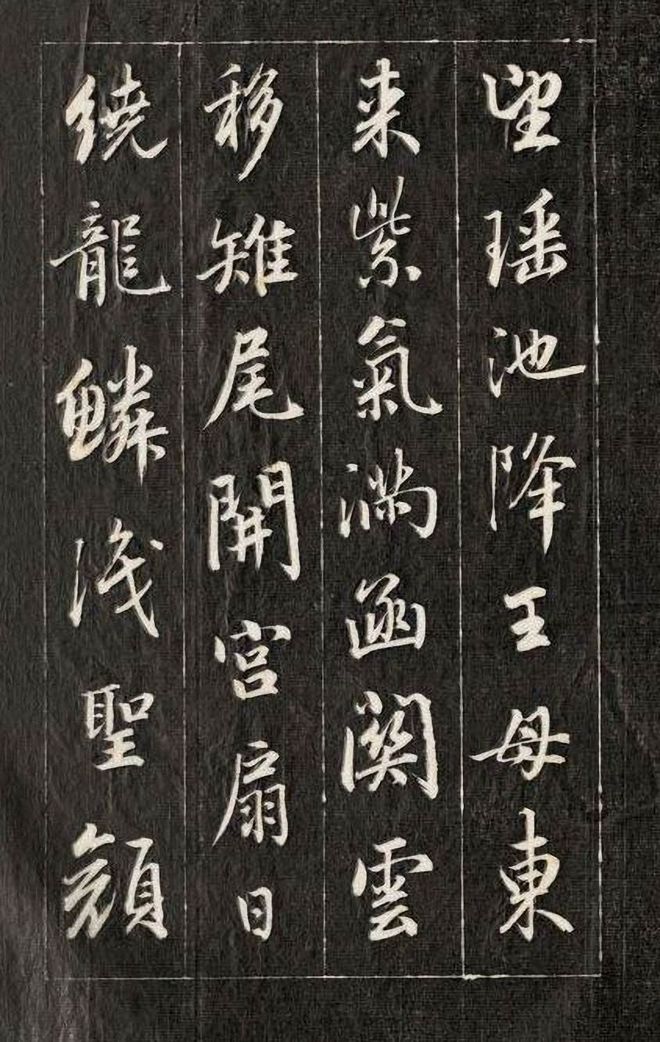 望瑶池降王母東
来紫氣滿函關雲
移雉尾開宫扇日
繞龍鱗識聖顔